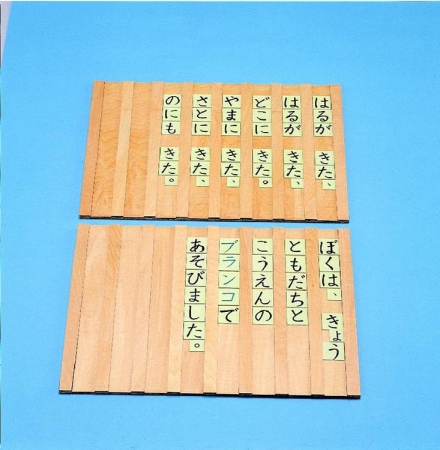 はるが　きた、
はるが　きた、
どこに　きた。
やまに　きた、
さとに　きた、
のにも　きた。
ぼくは、きょう
ともだちと
こうえんの
ブランコで
あそびました。